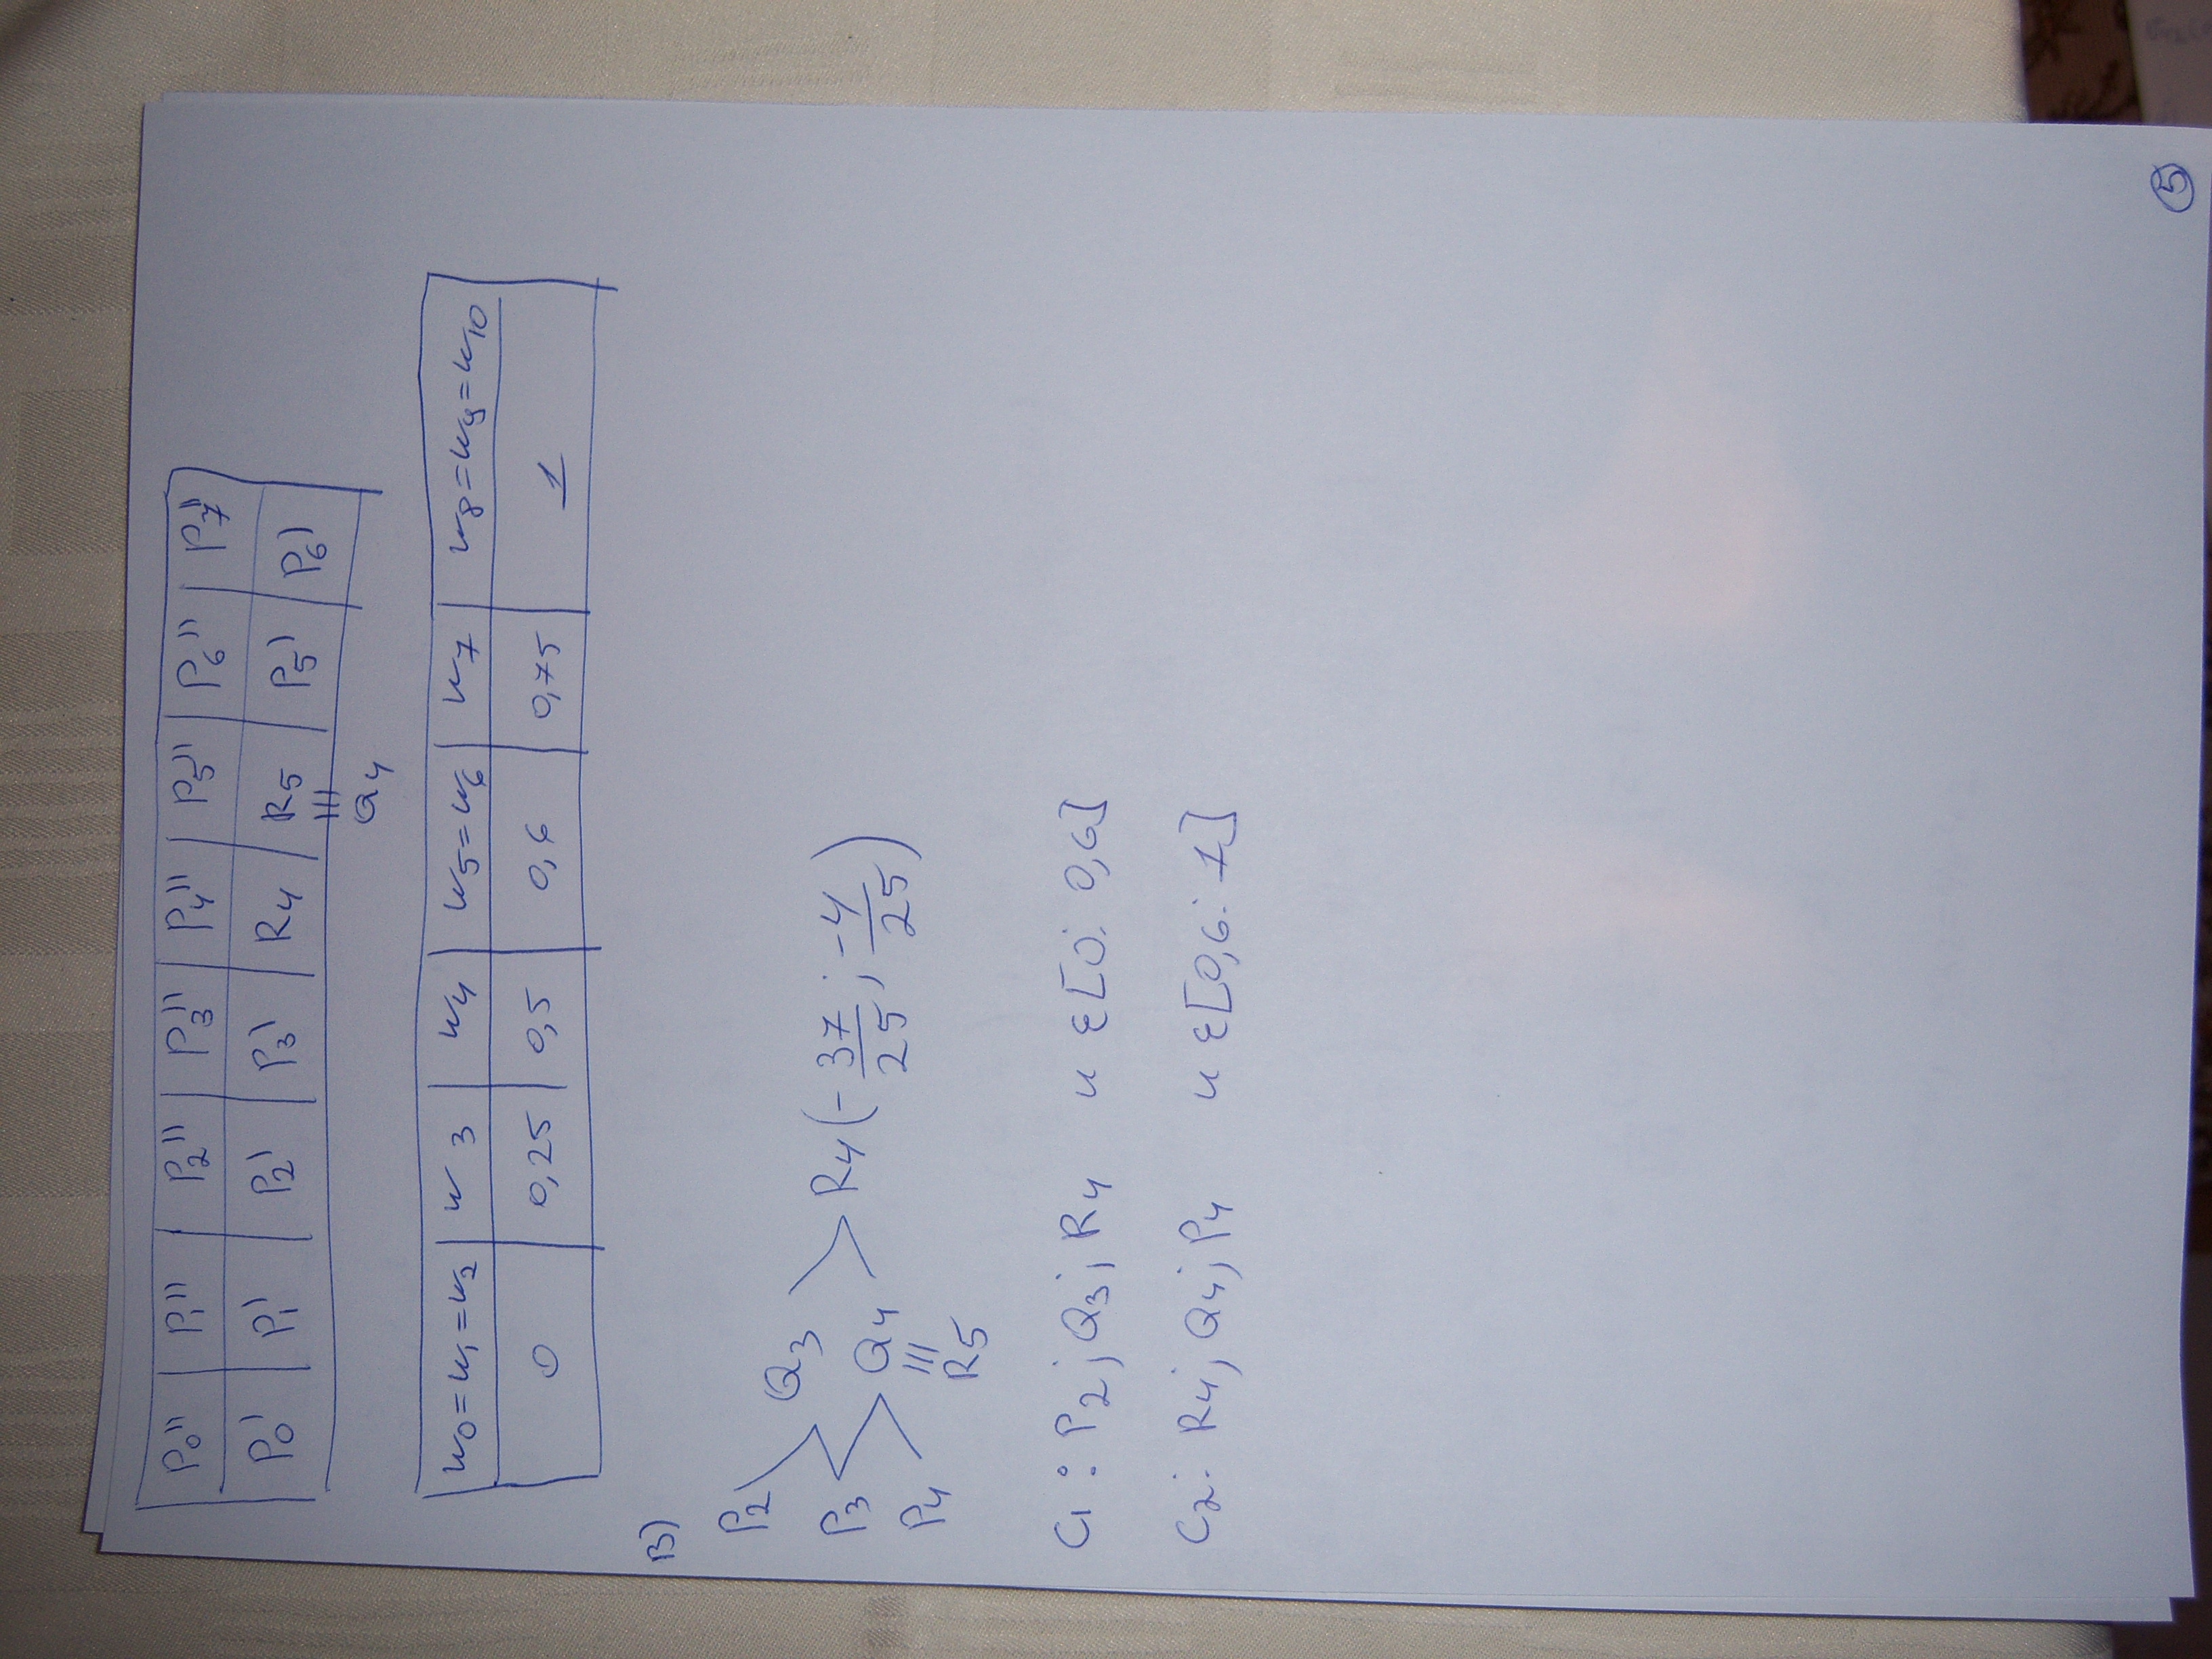 P0'' P1'' P2'' P3'' P4'' P5'' P6'' P7''
P0' P1' P2' P3' R4 R5 P5' P6'
≡
Q4
u0=u1=u2 u3 u4 u5=u6 u7 u8=u9=u10
0 0,25 0,5 0,6 0,75 1
B)
P2
Q3
P3 R4(-37/25; -4/25)
Q4
P4 ≡
R5
C1: P2; Q3; R4 u ε[0: 0,6]
C2: R4; Q4; P4 u ε[0,6: 1]
5